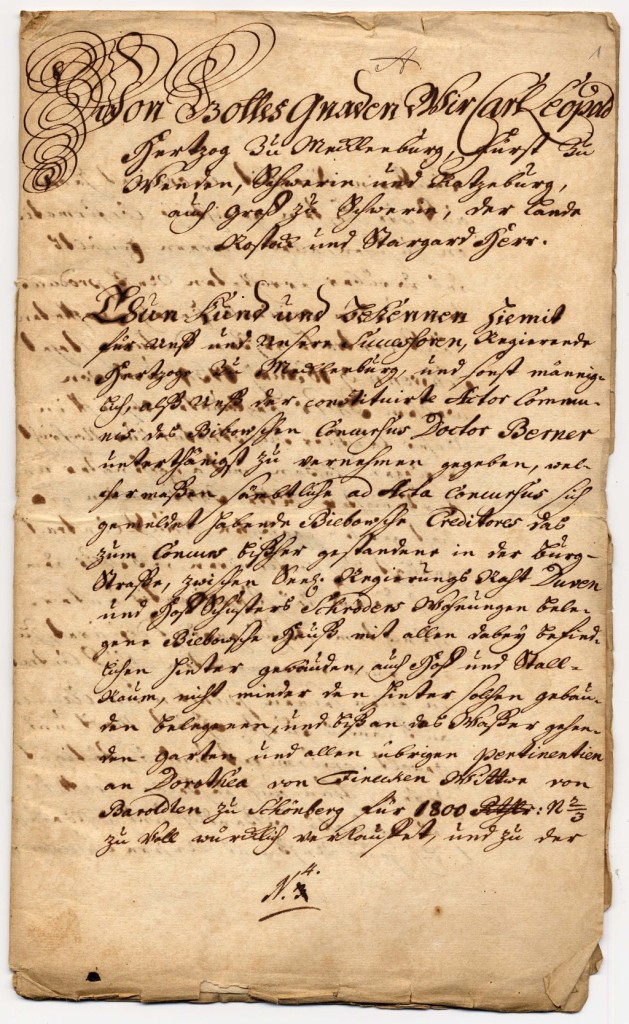 A
1
Von Gottes Gnaden Wir Carl Leopold
Hertzog zu Mecklenburg, Fürst zu
Wenden, Schwerin und Ratzeburg,
auch Graff zu Schwerin, der Lande
Rostock und Stargard Herr.
Thun Kund und bekennen hiemit
für Unß und Unsere Successoren, Regierende
Hertzoge zu Mecklenburg, und sonst männig-
lich, alß Unß der constituirte Actor Commu-
nis des Bibowschen Concursus Doctor Berner
unterthänigst zu vernehmen gegeben, wel-
cher maßen sämbtliche ad Acta Concursus sich
gemeldet habende Biebowsche Creditores das
zum Concurs bißher gestandene in der Burg-
Straße, zwischen Seel. Regierungs Raht Duven
und Hoff Schusters Schröders Wohnungen bele-
gene Biebowsche Hauß mit allen dabey befind-
lichen hinter gebäuden, auch Hoff und Stall-
Raum, nicht minder den hinter solchen gebäu-
den belegenen, und biß an das Waßer gehen-
den Garten und allen übrigen pertinentien
an Dorothea von Finecken Wittwe von
Baroldten zu Schönberg für 1800 Rthlr: N 2/3
zu voll würcklich verkauffet, und zu der
N. 4.